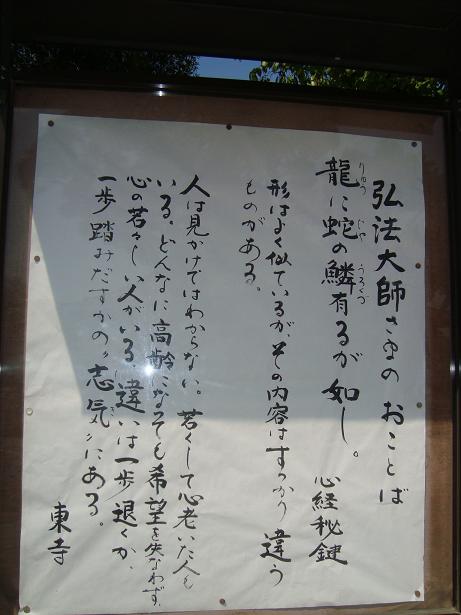 弘法大師さまの おことば
龍に蛇の鱗有るが如し。
心経秘鍵
形はよく似ているが、その内容はすっかり 違う
ものがある。
人は見かけではわからない。若くして心老いた人も
いる。どんなに高齢になっても希望を失なわず、
心の若々しい人がいる。違いは一歩退くか、
一歩踏みだすかの〝志気〟にある。
東寺